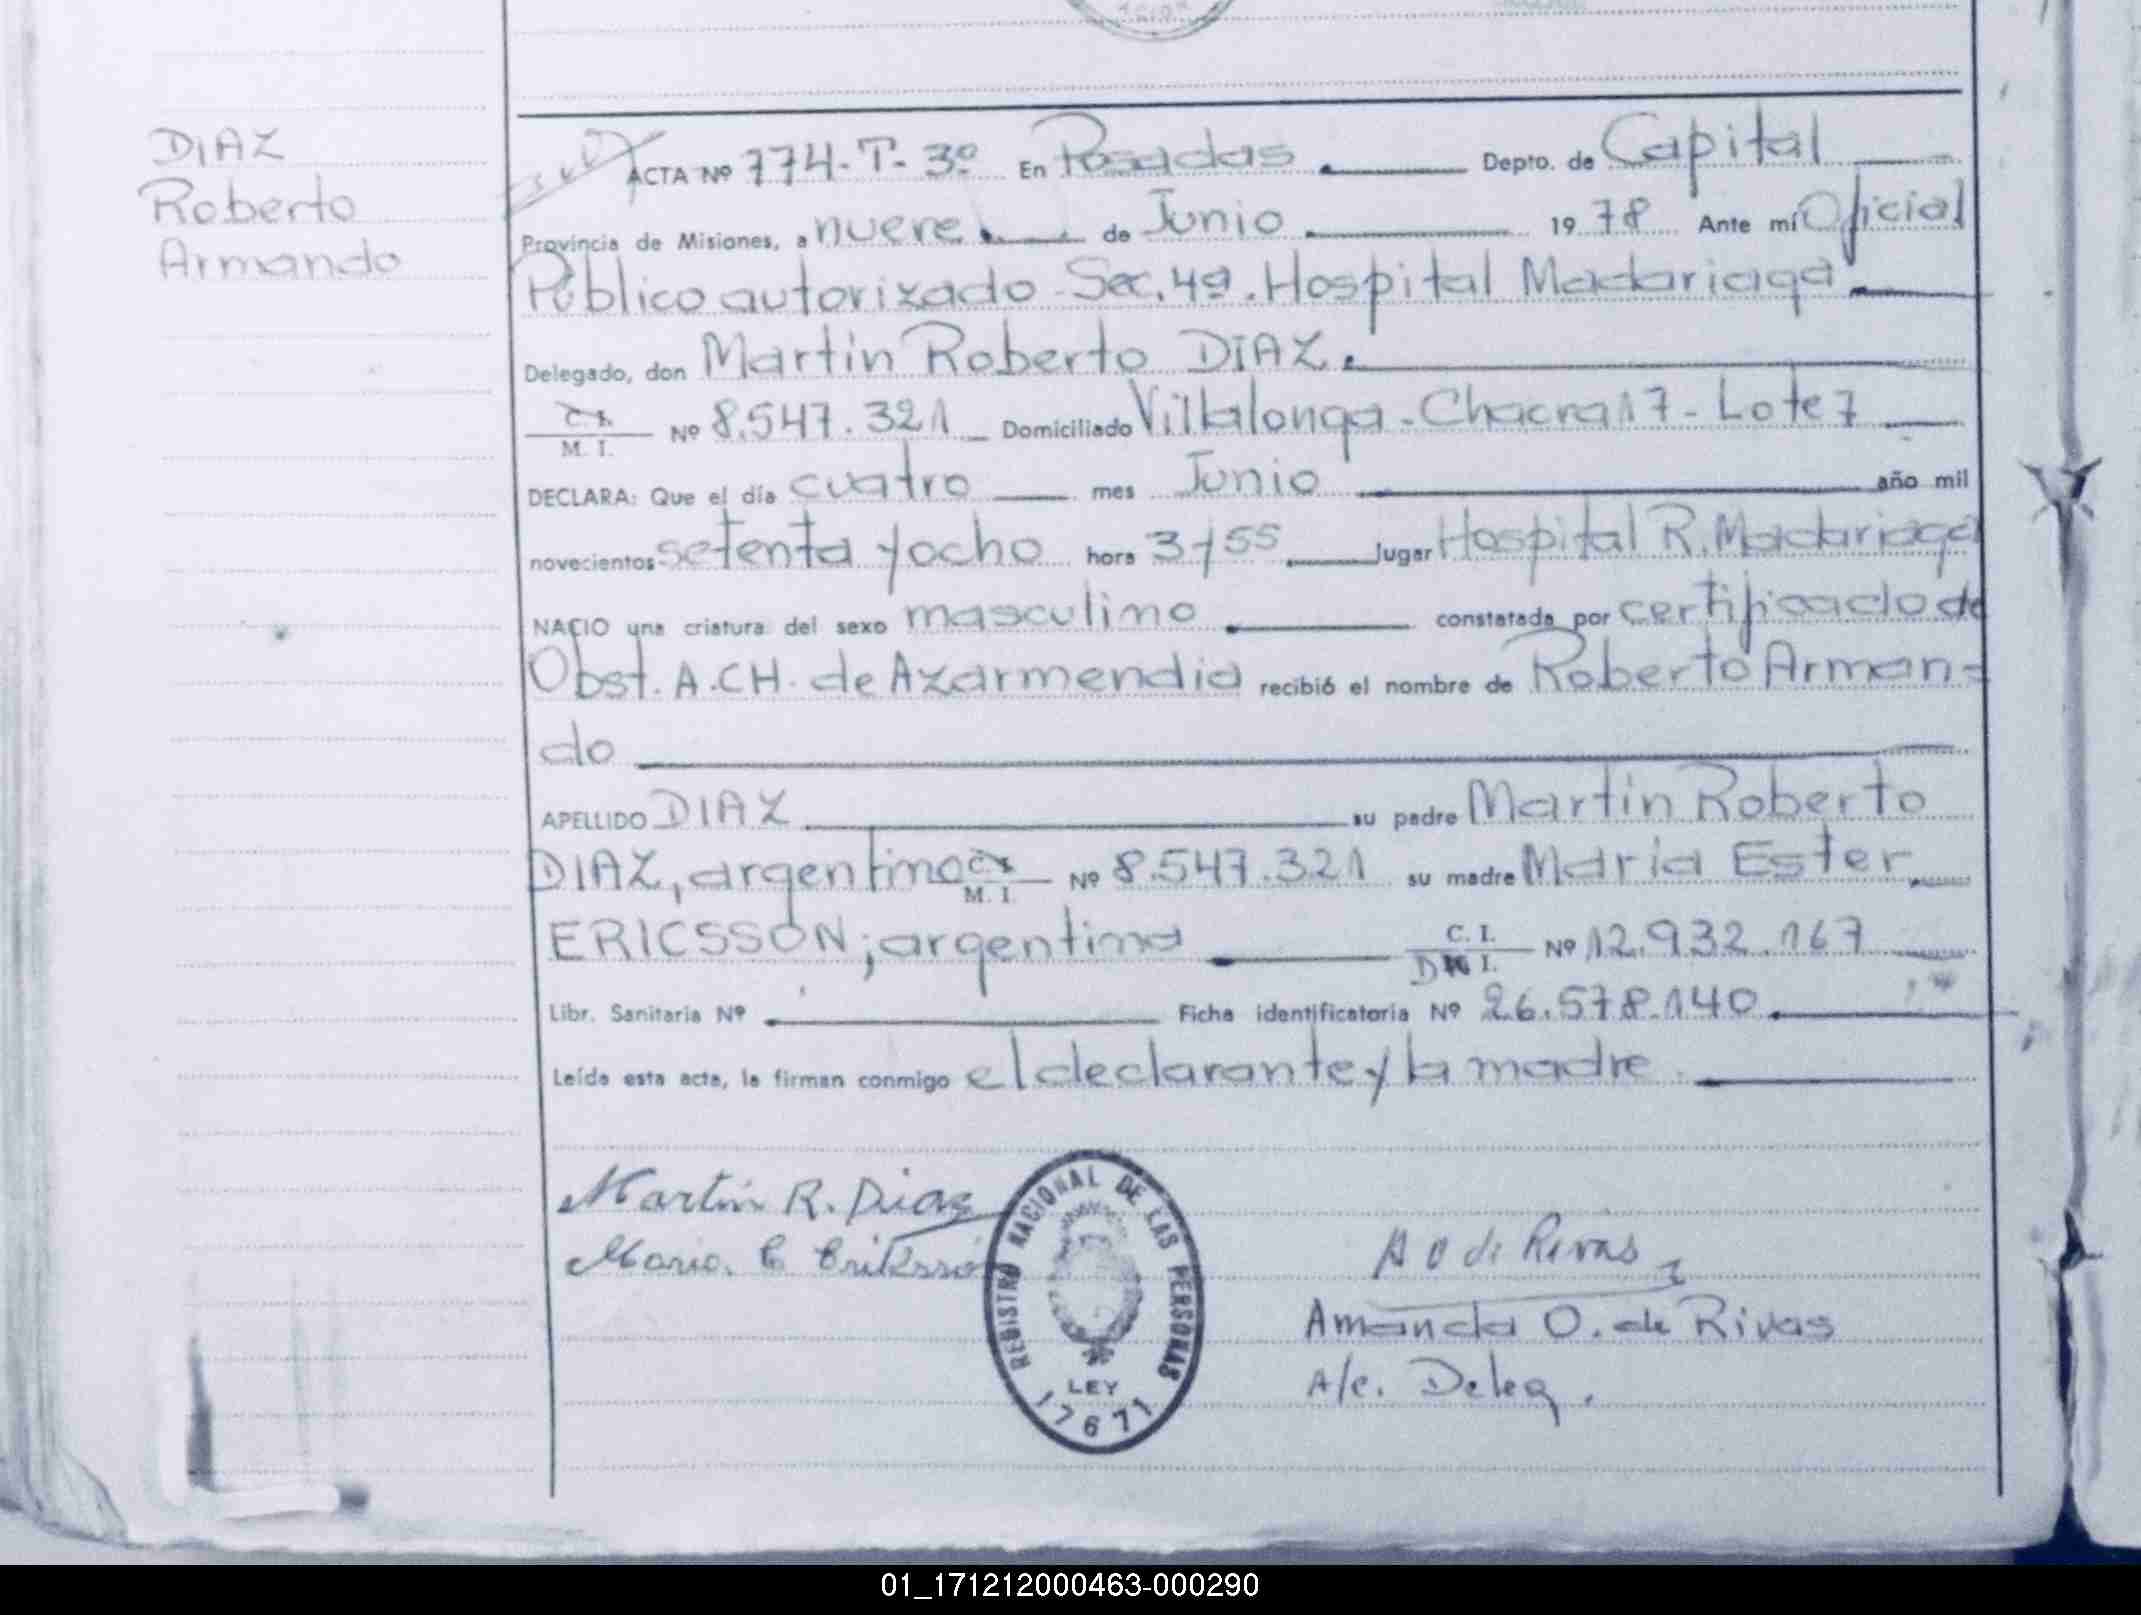 DIAZ
Roberto
Armando
ACTA Nº 774-T-3º En Posadas Depto. de Capital
Provincia de Misiones, a nueve de Junio 1978 Ante mí Oficial
Público autorizado Sec. 4ª. Hospital Madariaga
Delegado, don Martin Roberto DIAZ.
C. I.
M. I. Nº 8.547.321 Domiciliado Villalonga - Chacra 17 - Lote 7
DECLARA: Que el día cuatro mes Junio año mil
novecientos setenta y ocho hora 3 y 55 lugar Hospital R. Madariaga
NACIO una criatura del sexo masculino constatada por certificado de
Obst. A.CH. de Azarmendia recibió el nombre de Roberto Arman-
do
APELLIDO DIAZ su padre Martin Roberto
DIAZ, argentino C. I. M. I. Nº 8.547.321 su madre Maria Ester
ERICSSON; argentina C. I. DN I. Nº 12.932.167
Libr. Sanitaria Nº Ficha identificatoria Nº 26.578.140
Leída esta acta, la firman conmigo el declarante y la madre
Martín R. Diaz
Maria. E Eriksson
REGISTRO NACIONAL DE LAS PERSONAS
LEY
17671
A O de Rivas
Amanda O. de Rivas
A/c. Deleg.
01_171212000463-000290